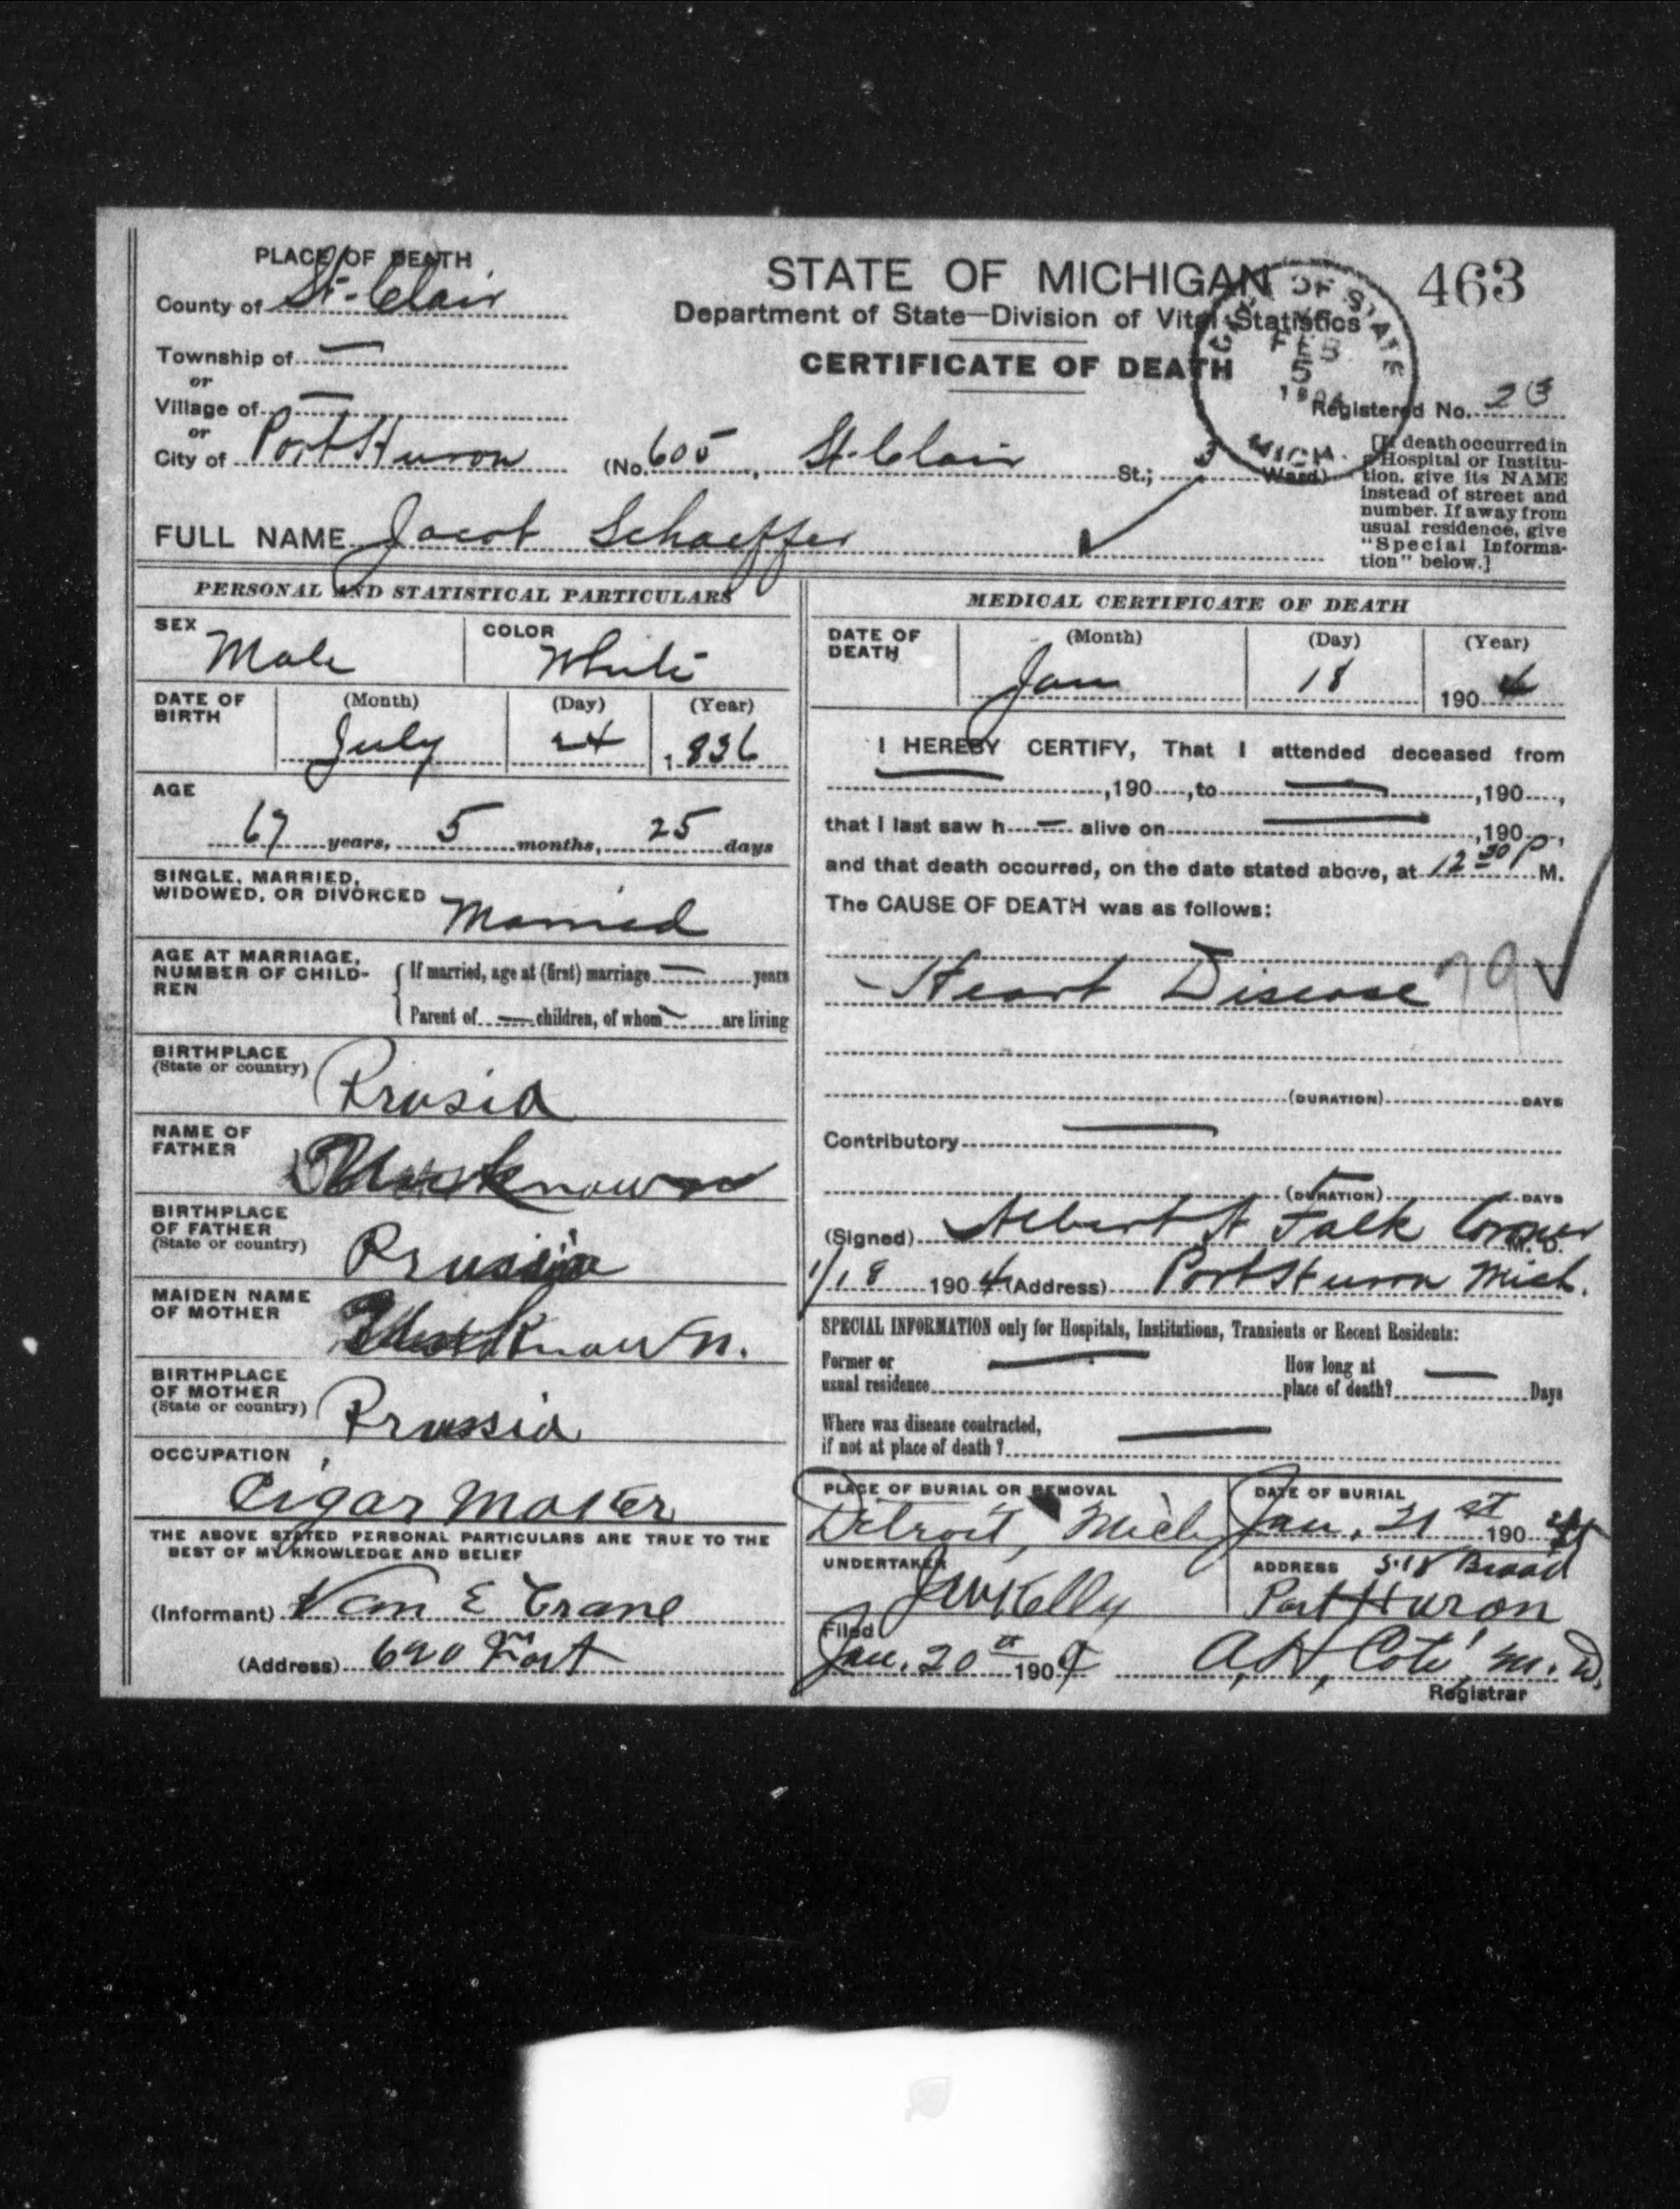 PLACE OF DEATH
County of St. Clair
Township of —
or
Village of —
or
City of Port Huron
STATE OF MICHIGAN
Department of State—Division of Vital Statistics
CERTIFICATE OF DEATH
463
OF STATE
FEB
5
1904
MICH.
Registered No. 23
(No. 605, St. Clair St.; 3 Ward)
[If death occurred in
Hospital or Institu-
tion, give its NAME
instead of street and
number. If away from
usual residence, give
"Special Informa-
tion" below.]
FULL NAME Jacob Schaeffer
PERSONAL AND STATISTICAL PARTICULARS
SEX Male
COLOR White
DATE OF BIRTH
(Month) (Day) (Year)
July 24 1836
AGE
67 years, 5 months, 25 days
SINGLE, MARRIED,
WIDOWED, OR DIVORCED Married
AGE AT MARRIAGE,
NUMBER OF CHILD-
REN
If married, age at (first) marriage — years
Parent of — children, of whom — are living
BIRTHPLACE
(State or country) Prusia
NAME OF
FATHER Unknown
BIRTHPLACE
OF FATHER
(State or country) Prussia
MAIDEN NAME
OF MOTHER Unknown.
BIRTHPLACE
OF MOTHER
(State or country) Prussia
OCCUPATION
Cigar Maker
THE ABOVE STATED PERSONAL PARTICULARS ARE TRUE TO THE
BEST OF MY KNOWLEDGE AND BELIEF
(Informant) Van E Crane
(Address) 620 Fort
MEDICAL CERTIFICATE OF DEATH
DATE OF DEATH
(Month) (Day) (Year)
Jan 18 1904
I HEREBY CERTIFY, That I attended deceased from
—, 190, to —, 190,
that I last saw h — alive on —, 190,
and that death occurred, on the date stated above, at 12 30 P. M.
The CAUSE OF DEATH was as follows:
Heart Disease 79
(DURATION) DAYS
Contributory —
(DURATION) DAYS
(Signed) Albert A Falk Coroner M. D.
1/18 1904 (Address) Port Huron Mich.
SPECIAL INFORMATION only for Hospitals, Institutions, Transients or Recent Residents:
Former or
usual residence —
How long at
place of death? — Days
Where was disease contracted,
if not at place of death? —
PLACE OF BURIAL OR REMOVAL
Detroit, Mich
DATE OF BURIAL
Jan. 21st 1904
UNDERTAKER
J W Kelly
ADDRESS 518 Broad
Port Huron
Filed
Jan. 20th 1904 A. H. Coté, M. D.
Registrar